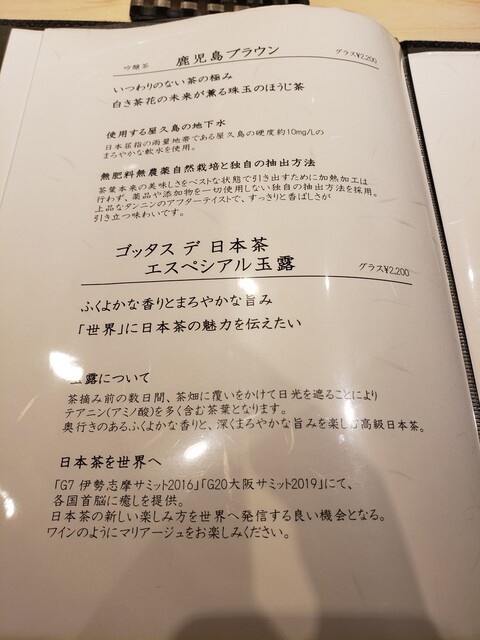 吟醸茶 鹿児島ブラウン グラス¥2,200
いつわりのない茶の極み
白き茶花の未来が薫る珠玉のほうじ茶
使用する屋久島の地下水
日本屈指の雨量地帯である屋久島の硬度約10mg/Lの
まろやかな軟水を使用。
無肥料無農薬自然栽培と独自の抽出方法
茶葉本来の美味しさをベストな状態で引き出すために加熱加工は
行わず、薬品や添加物を一切使用しない独自の抽出方法を採用。
上品なタンニンのアフターテイストで、すっきりと香ばしさが
引き立つ味わいです。
ゴッタス デ 日本茶
エスペシアル玉露 グラス¥2,200
ふくよかな香りとまろやかな旨み
「世界」に日本茶の魅力を伝えたい
玉露について
茶摘み前の数日間、茶畑に覆いをかけて日光を遮ることにより
テアニン(アミノ酸)を多く含む茶葉となります。
奥行きのあるふくよかな香りと、深くまろやかな旨みを楽しむ高級日本茶。
日本茶を世界へ
「G7 伊勢志摩サミット2016」「G20大阪サミット2019」にて、
各国首脳に癒しを提供。
日本茶の新しい楽しみ方を世界へ発信する良い機会となる。
ワインのようにマリアージュをお楽しみください。